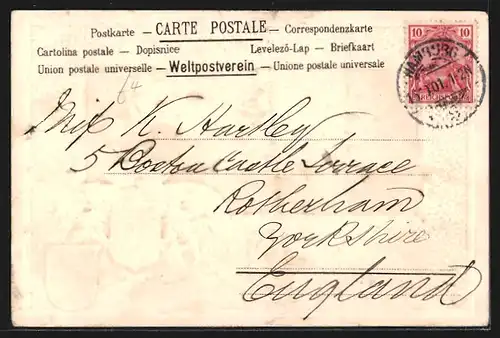 Postkarte – CARTE POSTALE – Correspondenzkarte
Cartolina postale – Dopisnice Levelező-Lap – Briefkaart
Union postale universelle – Weltpostverein – Unione postale universale
10 10
HAMBURG
Miss K. Hartley
5 Boston Castle Terrace
Rotherham
Yorkshire
England